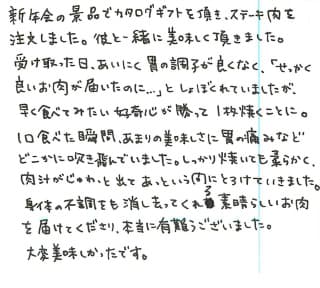 新年会の景品でカタログギフトを頂き、ステーキ肉を
注文しました。彼と一緒に美味しく頂きました。
受け取った日、あいにく胃の調子が良くなく、「せっかく
良いお肉が届いたのに…」としょぼくれていましたが、
早く食べてみたい好奇心が勝って1枚焼くことに。
1口食べた瞬間、あまりの美味しさに胃の痛みなど
どこかに吹き飛んでいました。しっかり焼いても柔らかく、
肉汁がじゅわっと出てあっという間にとろけていきました。
身体の不調をも消し去ってくれる素晴らしいお肉
を届けてくださり、本当に有難うございました。
大変美味しかったです。